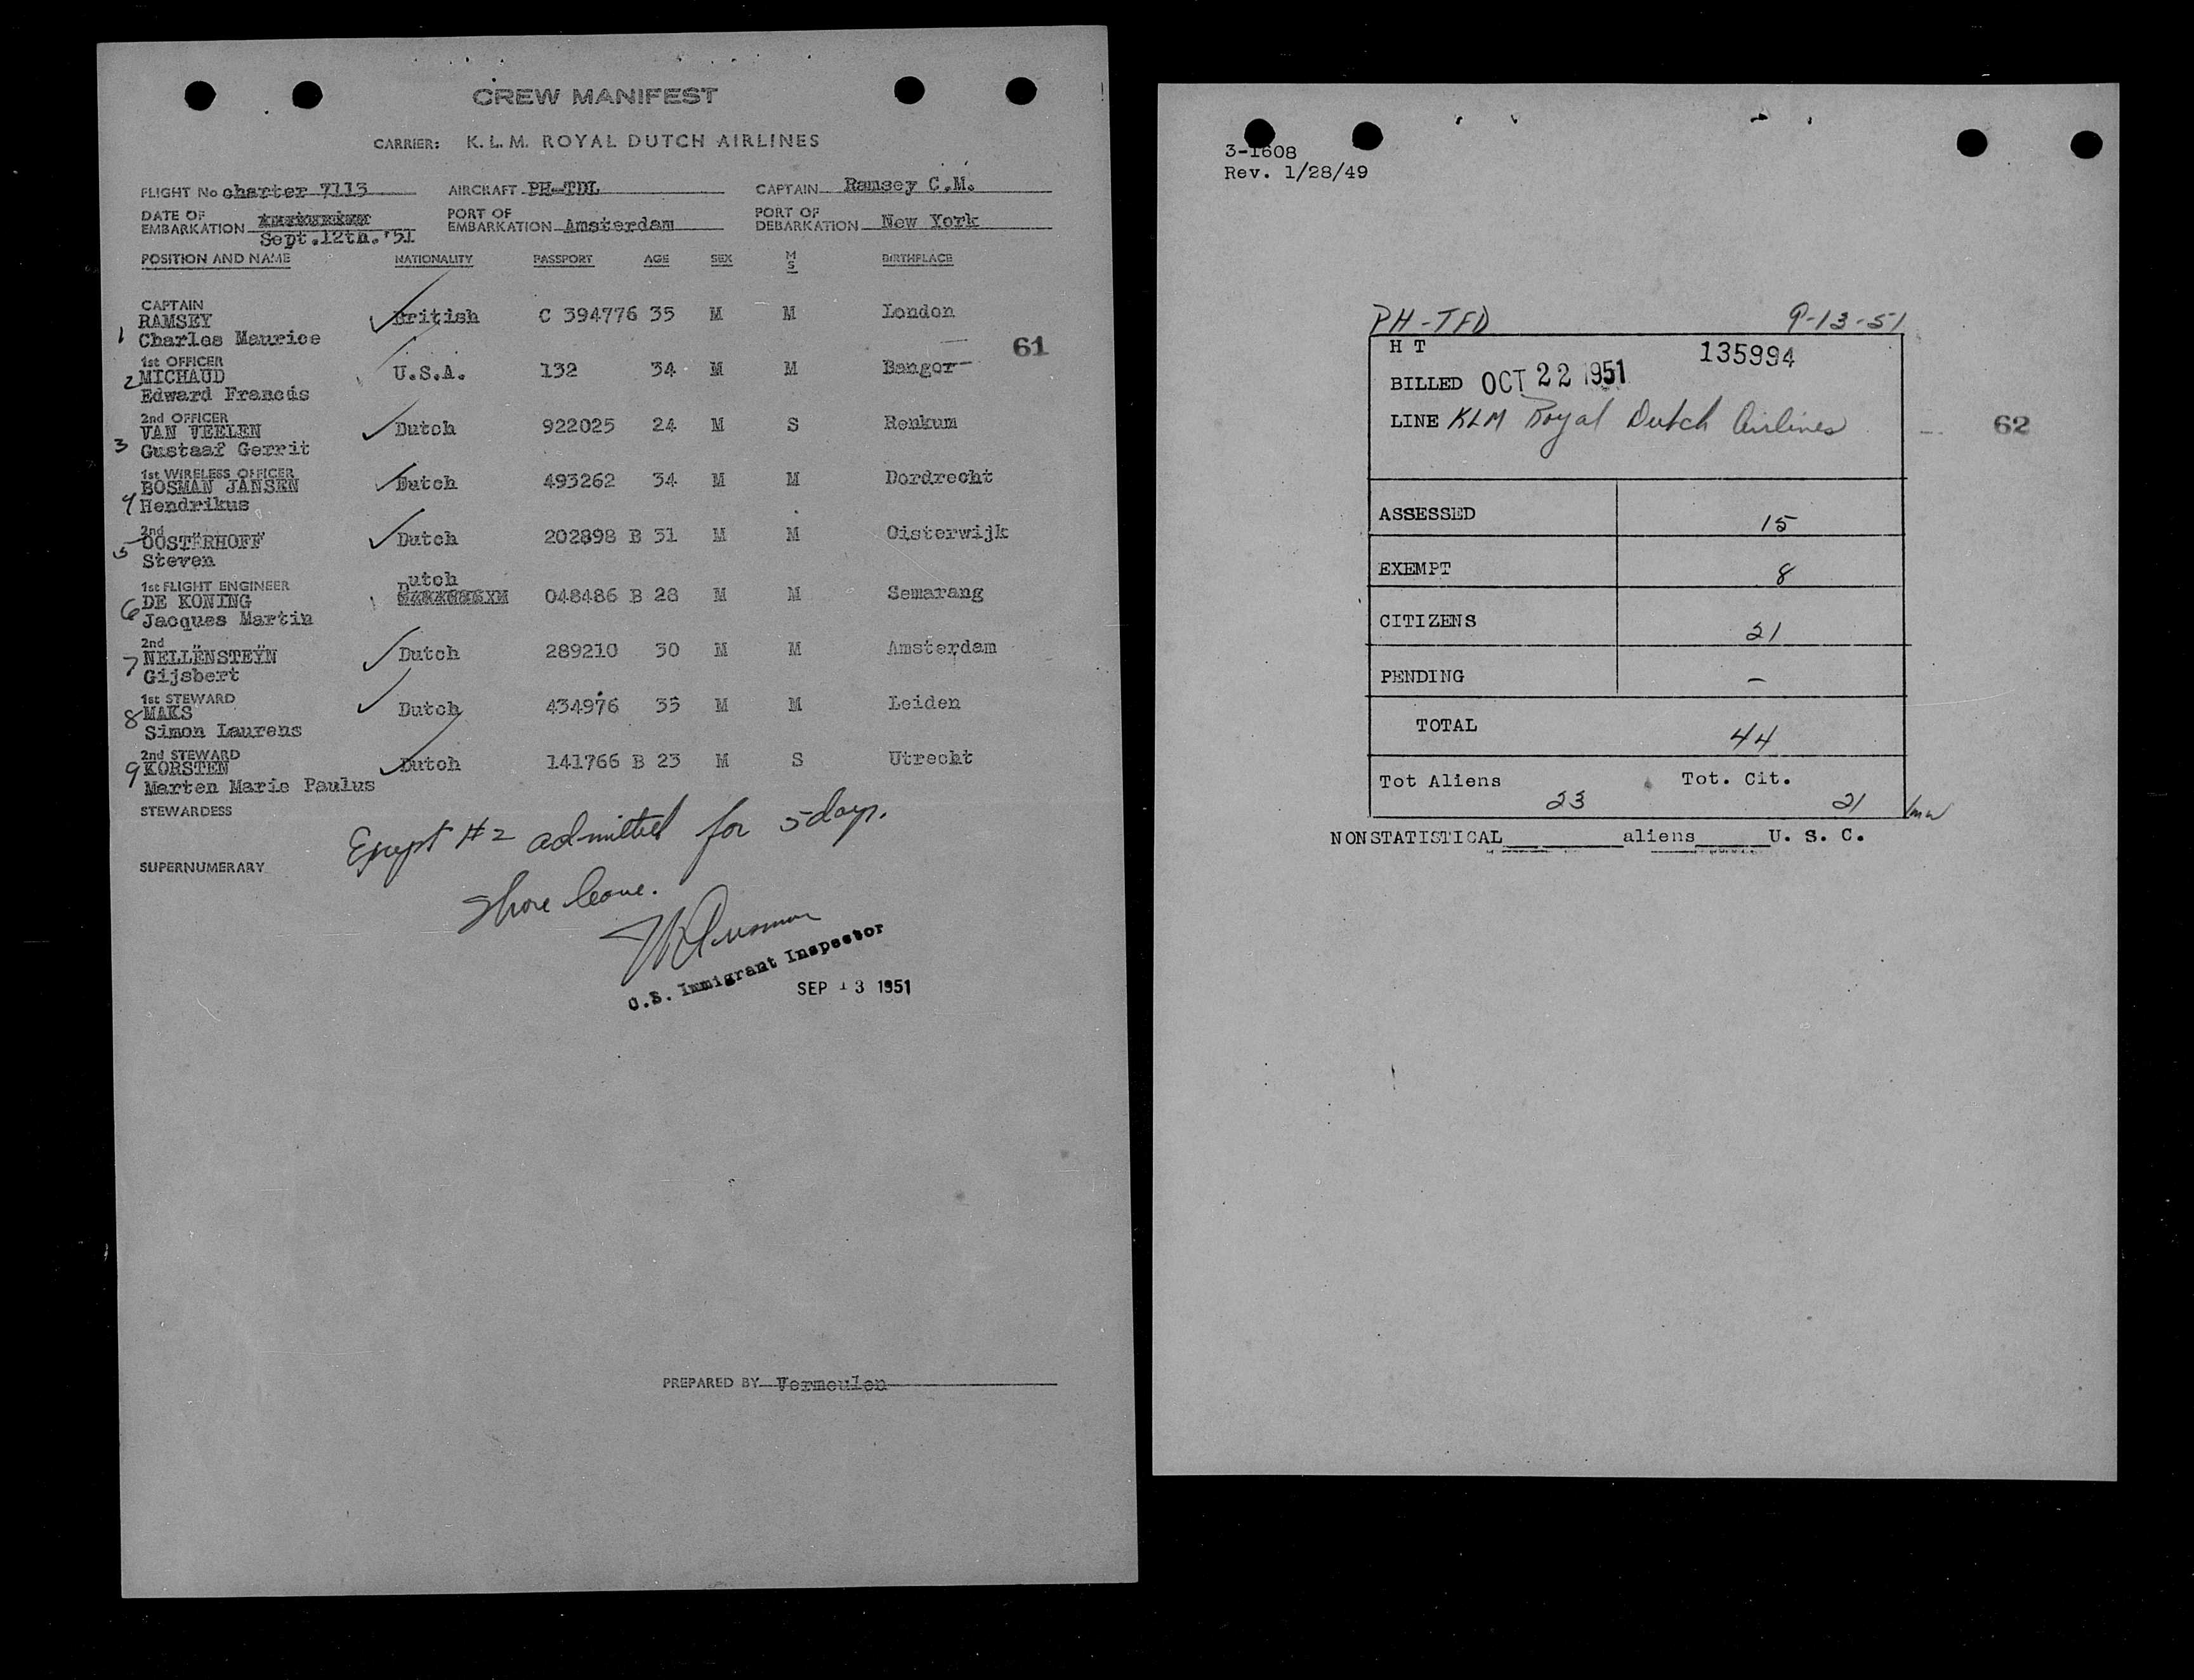 CREW MANIFEST
CARRIER: K.L.M. ROYAL DUTCH AIRLINES
FLIGHT No charter 7113 AIRCRAFT PH-TDL CAPTAIN Ramsey C.M.
DATE OF EMBARKATION Sept.12th.'51 PORT OF EMBARKATION Amsterdam PORT OF DEBARKATION New York
POSITION AND NAME NATIONALITY PASSPORT AGE SEX M S BIRTHPLACE
CAPTAIN
RAMSEY British C 394776 35 M M London
1 Charles Maurice
61
1st OFFICER
2 MICHAUD U.S.A. 132 34 M M Bangor
Edward Francis
2nd OFFICER
VAN VEELEN Dutch 922025 24 M S Renkum
3 Gustaaf Gerrit
1st WIRELESS OFFICER
BOSMAN JANSEN Dutch 493262 34 M M Dordrecht
4 Hendrikus
2nd
5 OOSTERHOFF Dutch 202898 B 31 M M Oisterwijk
Steven
1st FLIGHT ENGINEER
6 DE KONING Dutch 048486 B 28 M M Semarang
Jacques Martin
2nd
7 NELLENSTEŸN Dutch 289210 30 M M Amsterdam
Gijsbert
1st STEWARD
8 MAKS Dutch 434976 35 M M Leiden
Simon Laurens
2nd STEWARD
9 KORSTEN Dutch 141766 B 23 M S Utrecht
Marten Marie Paulus
STEWARDESS
Exept #2 admitted for 5 days.
SUPERNUMERARY
Shore leave.
U.S. Immigrant Inspector
SEP 13 1951
PREPARED BY Vermeulen
3-1608
Rev. 1/28/49
PH-TFD 9-13-51
H T 135994
BILLED OCT 22 1951
LINE KLM Royal Dutch Airlines
62
ASSESSED 15
EXEMPT 8
CITIZENS 21
PENDING –
TOTAL 44
Tot Aliens Tot. Cit.
23 21
NONSTATISTICAL______aliens______U. S. C.